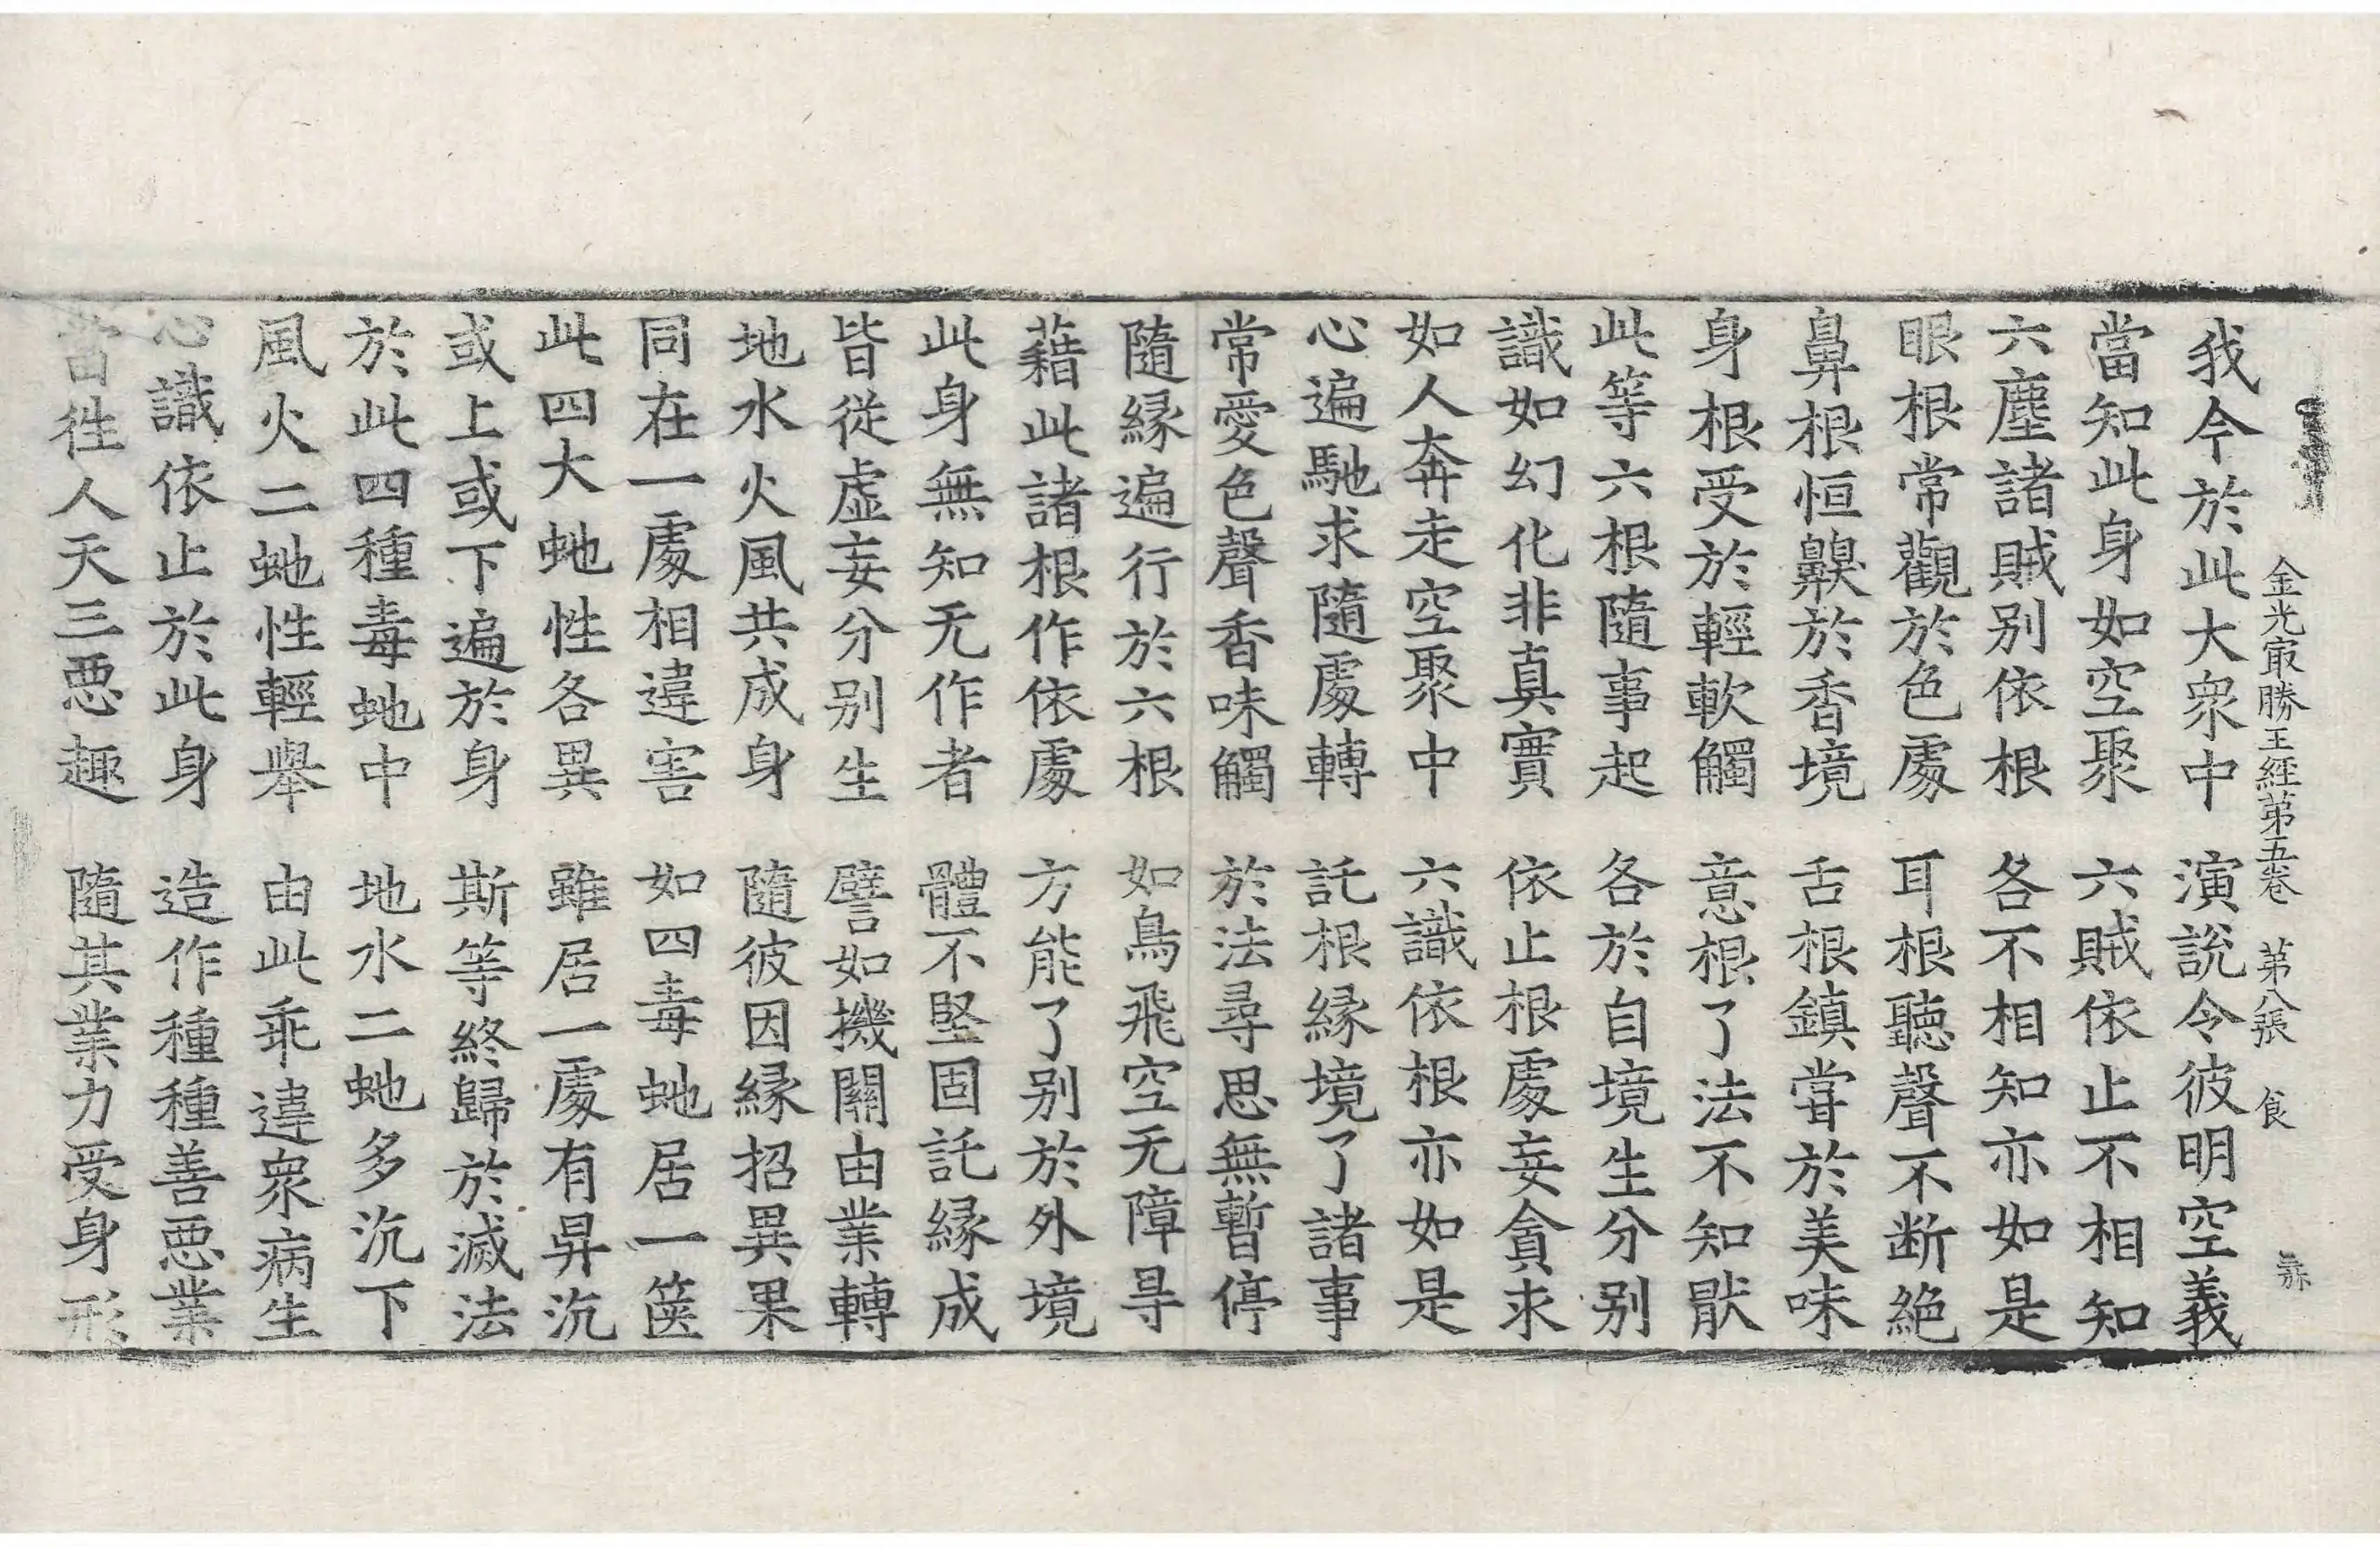 金光㝡勝王經第五卷　第八張　食
我今於此大衆中　演說令彼明空義
當知此身如空聚　六賊依止不相知
六塵諸賊別依根　各不相知亦如是
眼根常觀於色處　耳根聽聲不断絕
鼻根恒齅於香境　舌根鎮甞於美味
身根受於輕軟觸　意根了法不知猒
此等六根隨事起　各於自境生分別
識如幻化非真實　依止根處妄貪求
如人奔走空聚中　六識依根亦如是
心遍馳求隨處轉　託根緣境了諸事
常愛色聲香味觸　於法尋思無暫停
隨緣遍行於六根　如鳥飛空无障㝵
藉此諸根作依處　方能了別於外境
此身無知无作者　體不堅固託緣成
皆從虛妄分別生　譬如機關由業轉
地水火風共成身　隨彼因緣招異果
同在一處相違害　如四毒虵居一篋
此四大虵性各異　雖居一處有昇沉
或上或下遍於身　斯等終歸於滅法
於此四種毒虵中　地水二虵多沉下
風火二虵性輕舉　由此乖違衆病生
心識依止於此身　造作種種善惡業
當徃人天三惡趣　隨其業力受身形